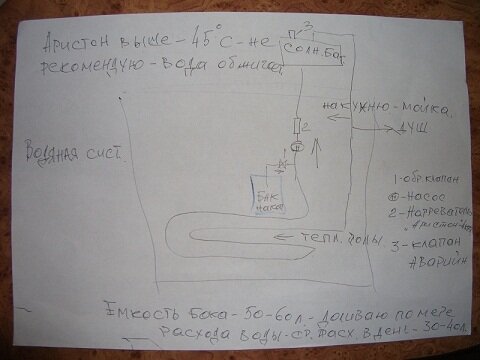 Аристон выше - 45°С - не
рекомендую - вода обжигает
3
П
солн. бат.
на кухню - мойка.
душ
2
Водяная сист.
Бак
нака
тепл. полы.
1 - обр. клапан
⊕ - насос
2 - Нагреватель
"Аристон"
3 - клапан
Аварийн
Емкость бака - 50-60л. - доливаю по мере
расхода воды - ср. расх. в день - 30-40л.